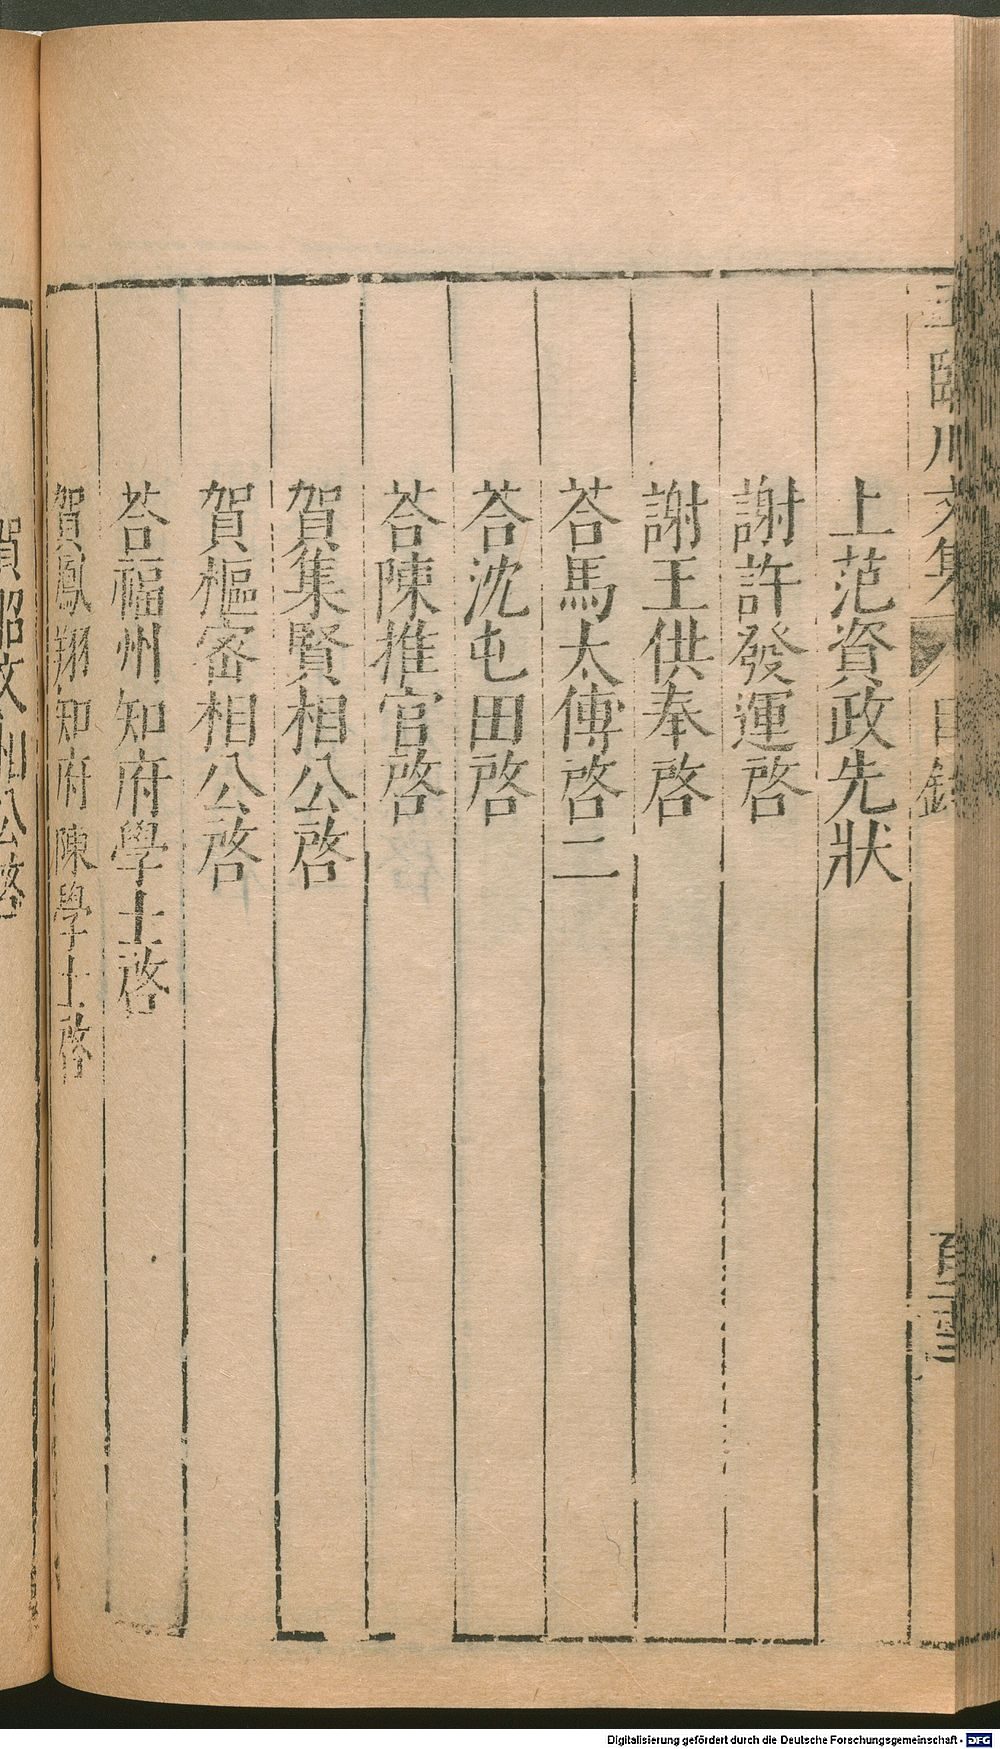 王臨川文集 目錄
百二十三
上范資政先狀
謝許發運啓
謝王供奉啓
荅馬太傅啓二
荅沈屯田啓
荅陳推官啓
賀集賢相公啓
賀樞密相公啓
荅福州知府學士啓
賀鳳翔知府陳學士啓
賀昭文相公啓
Digitalisierung gefördert durch die Deutsche Forschungsgemeinschaft - DFG